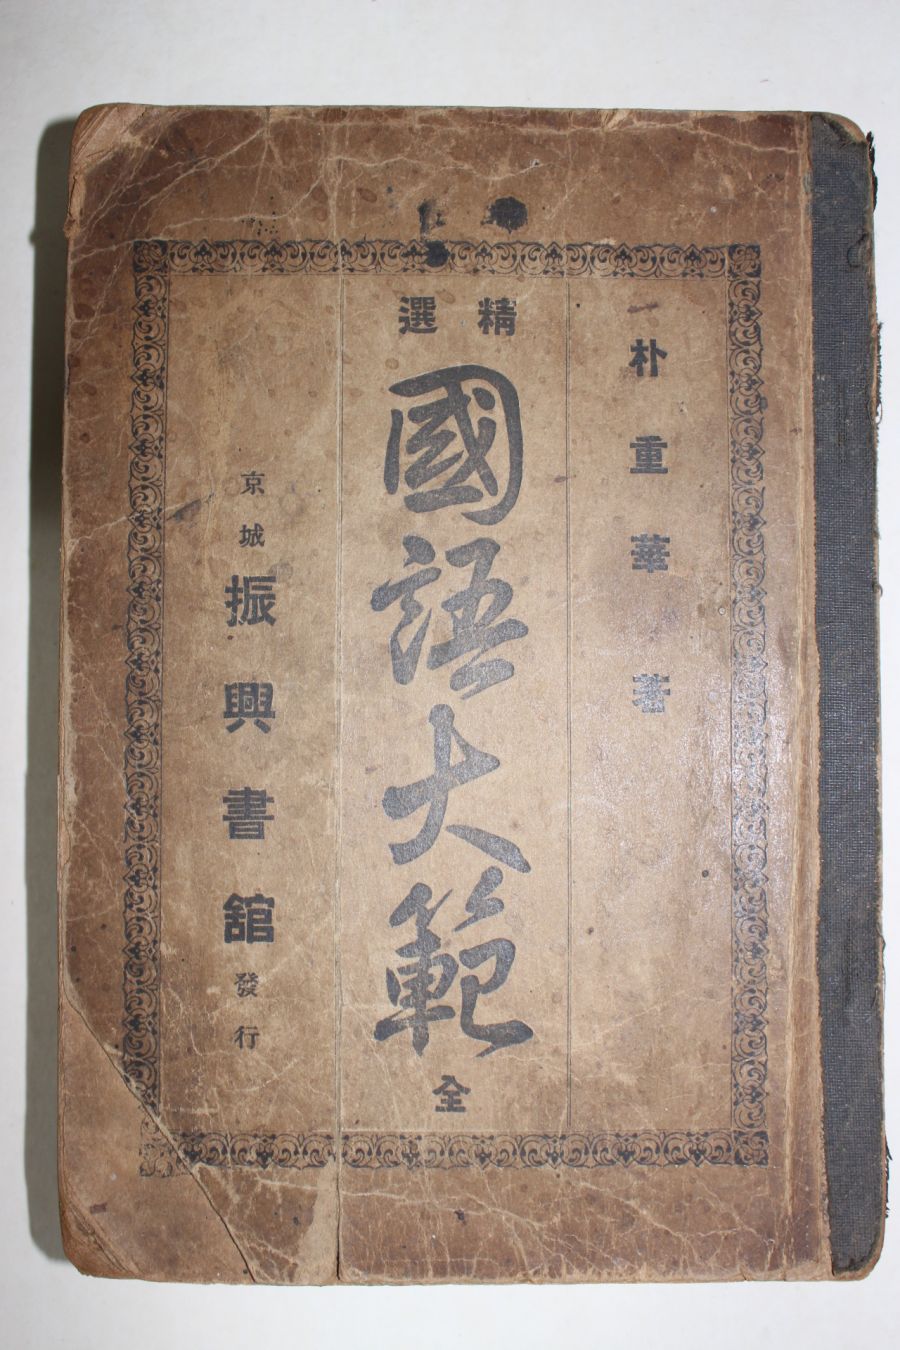 朴重華著
精選
國語大範
全
京城 振興書舘 發行